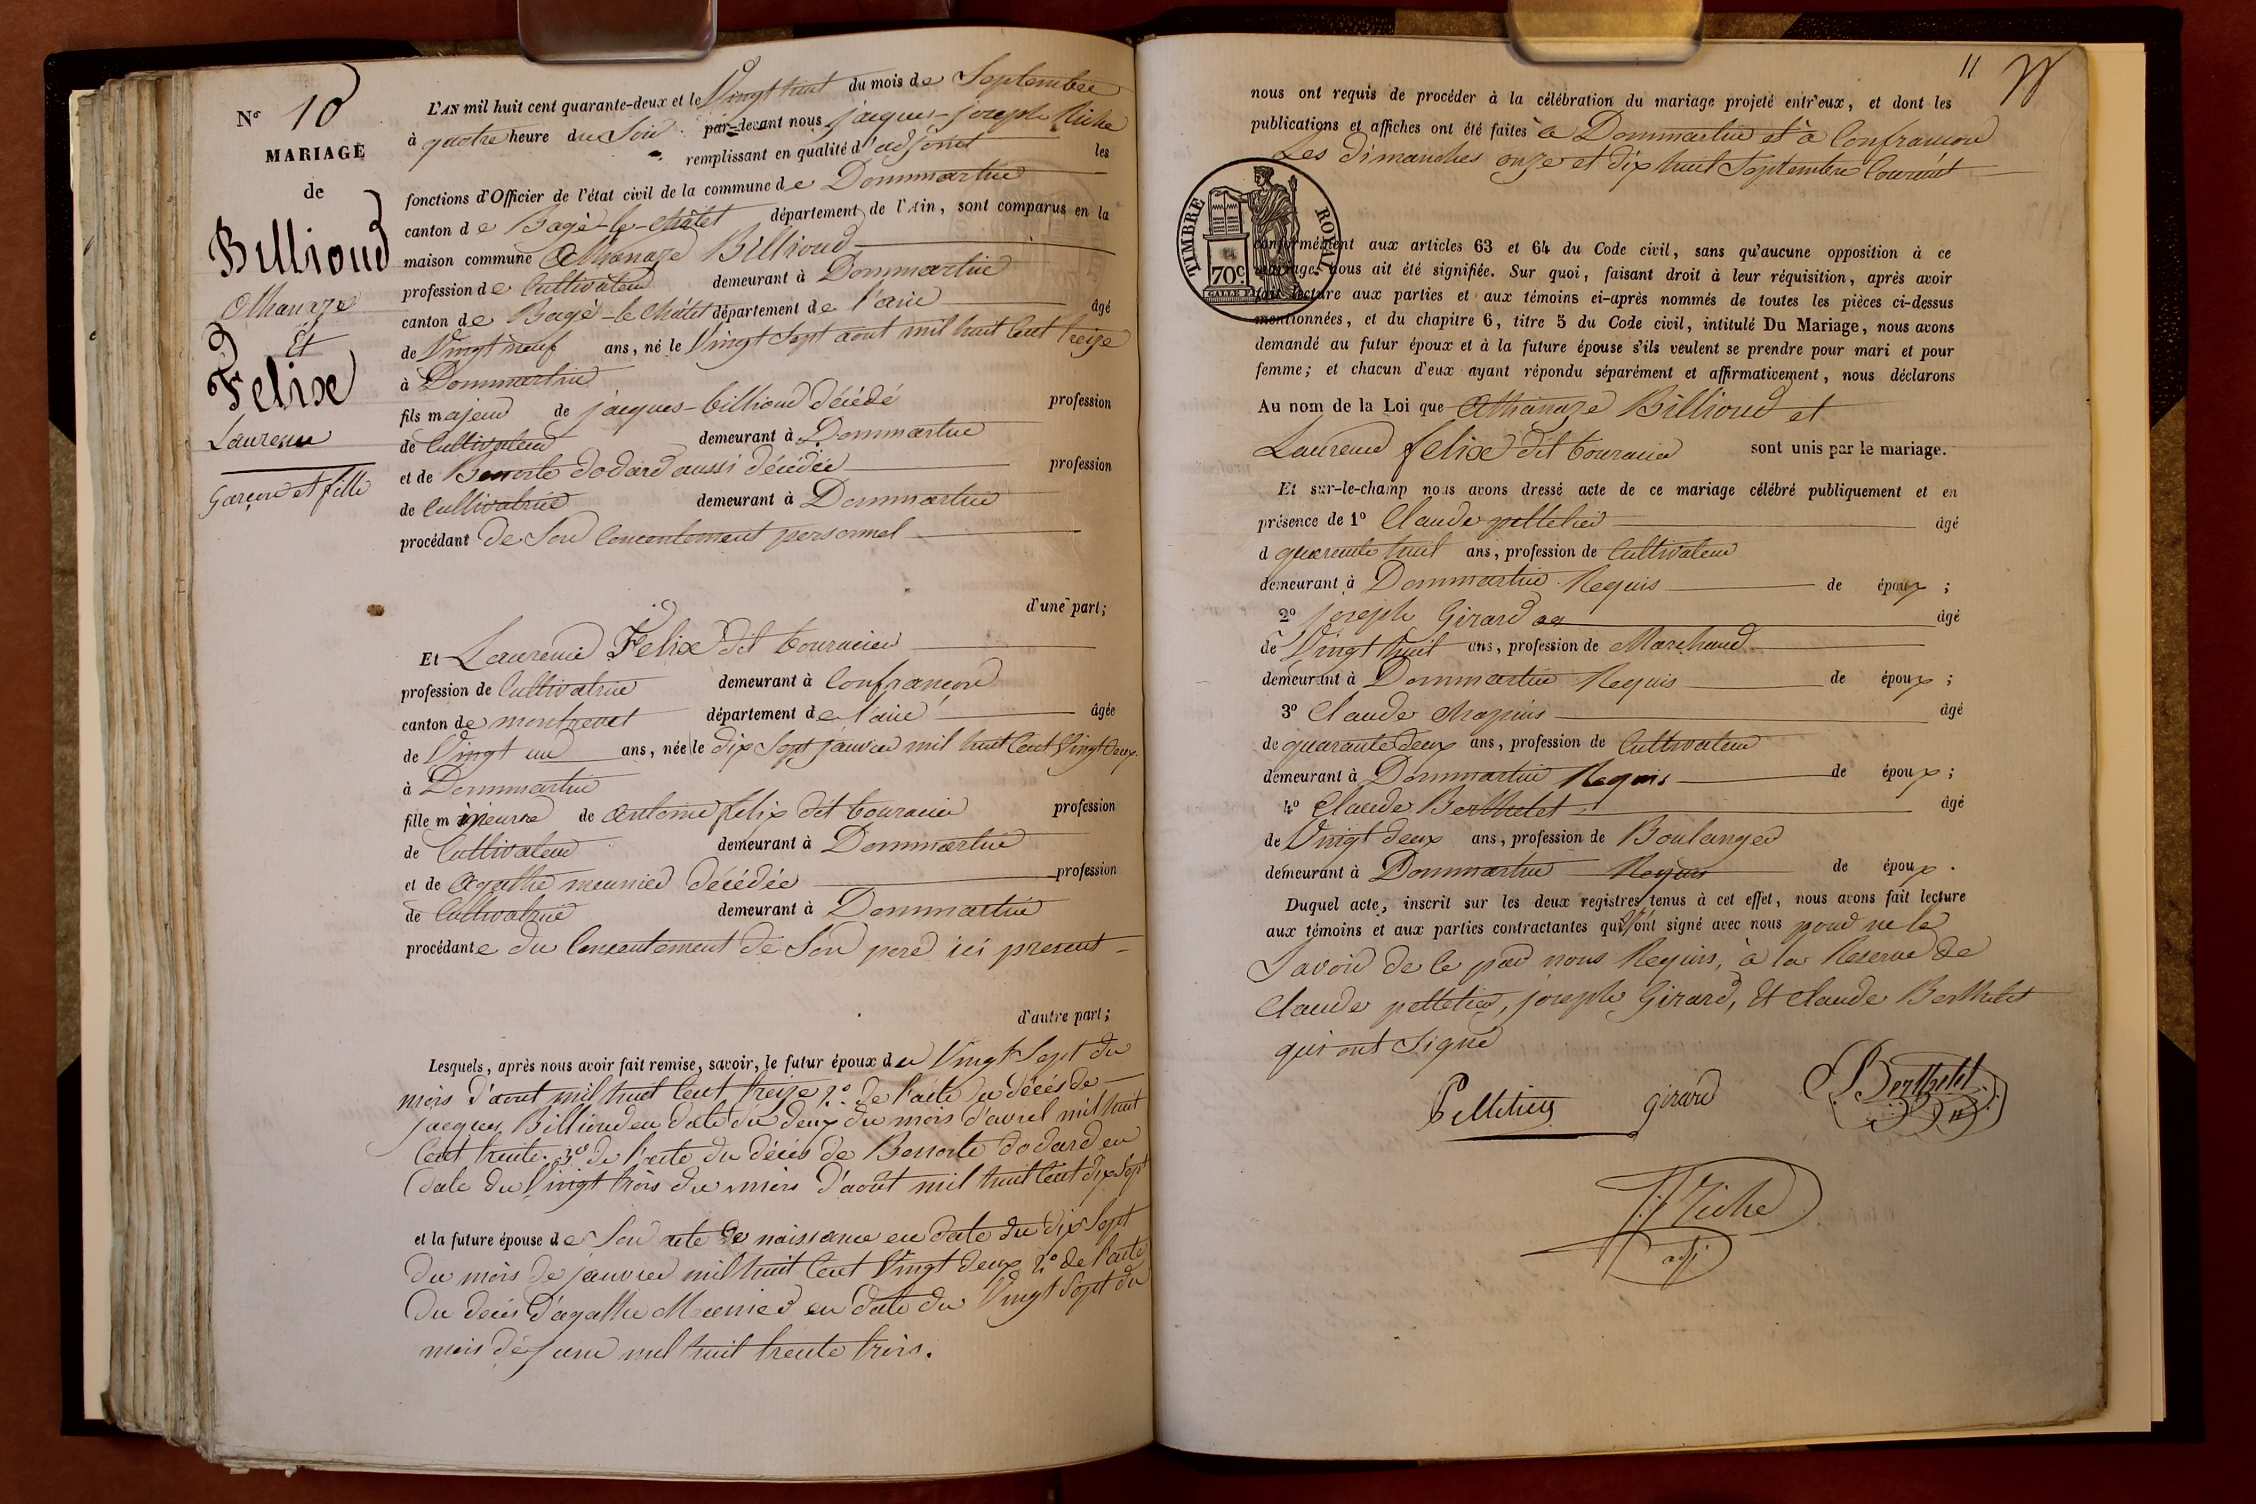 N° 10
MARIAGE
de
Billioud
Athanaze
Et
Felix
Laurence
Garçon et fille
L'AN mil huit cent quarante-deux et le Vingt huit du mois de Septembre
à quatre heure du Soir par-devant nous jacques-joseph Riche
remplissant en qualité d'adjoint les
fonctions d'Officier de l'état civil de la commune de Dommartin
canton de Bagé-le-châtel département de l'Ain, sont comparus en la
maison commune Athanaze Billioud
profession de Cultivateur demeurant à Dommartin
canton de Bagé-le-Châtel département de l'ain âgé
de Vingt neuf ans, né le Vingt Sept aout mil huit Cent treize
à Dommartin
fils majeur de jacques-billioud décédé profession
de Cultivateur demeurant à Dommartin
et de Benoite dodard aussi décédée profession
de Cultivatrice demeurant à Dommartin
procédant de Son Consentement personnel
d'une part;
Et Laurence Felix dit tournier
profession de Cultivatrice demeurant à Confrançon
canton de montrevel département de l'ain âgée
de Vingt un ans, née le dix Sept janvier mil huit Cent Vingt deux
à Dommartin
fille mineure de antoine felix dit tournier profession
de Cultivateur demeurant à Dommartin
et de Agathe meunier décédée profession
de Cultivatrice demeurant à Dommartin
procédante du Consentement de Son pere ici present
d'autre part;
Lesquels, après nous avoir fait remise, savoir, le futur époux du Vingt Sept du
mois d'aout mil huit Cent treize 2° de l'acte du décés de
jacques Billioud en date du deux du mois d'avril mil huit
Cent trente. 3° de l'acte du décés de Benoite dodard en
date du Vingt trois du mois d'août mil huit Cent dix Sept
et la future épouse de Son acte de naissance en date du dix Sept
du mois de janvier mil huit Cent Vingt deux 2° de l'acte
du decés d'agathe Meunier en date du Vingt Sept du
mois de juin mil huit trente trois.
11
nous ont requis de procéder à la célébration du mariage projeté entr'eux, et dont les
publications et affiches ont été faites à Dommartin et à Confrancon
Les dimanches onze et dix huit Septembre Courant
TIMBRE ROYAL
70c
conformément aux articles 63 et 64 du Code civil, sans qu'aucune opposition à ce
mariage nous ait été signifiée. Sur quoi, faisant droit à leur réquisition, après avoir
fait lecture aux parties et aux témoins ci-après nommés de toutes les pièces ci-dessus
mentionnées, et du chapitre 6, titre 5 du Code civil, intitulé Du Mariage, nous avons
demandé au futur époux et à la future épouse s'ils veulent se prendre pour mari et pour
femme; et chacun d'eux ayant répondu séparément et affirmativement, nous déclarons
Au nom de la Loi que Athanaze Billioud et
Laurence felix dit tournier sont unis par le mariage.
Et sur-le-champ nous avons dressé acte de ce mariage célébré publiquement et en
présence de 1° Claude pelletier âgé
d quarente huit ans, profession de Cultivateur
demeurant à Dommartin Requis de époux;
2° joseph Girard âgé
de Vingt huit ans, profession de Marchand
demeurant à Dommartin Requis de époux;
3° Claude Chapuis âgé
de quarante deux ans, profession de Cultivateur
demeurant à Dommartin Requis de époux;
4° Claude Berthelet âgé
de Vingt deux ans, profession de Boulanger
demeurant à Dommartin Requis de époux.
Duquel acte, inscrit sur les deux registres tenus à cet effet, nous avons fait lecture
aux témoins et aux parties contractantes qui n'ont signé avec nous pour ne le
Savoir de ce par nous Requis, à la Reserve de
Claude pelletier, joseph Girard, Et Claude Berthelet
qui ont Signé
Pelletier Girard Berthelet
JJ Riche
adj